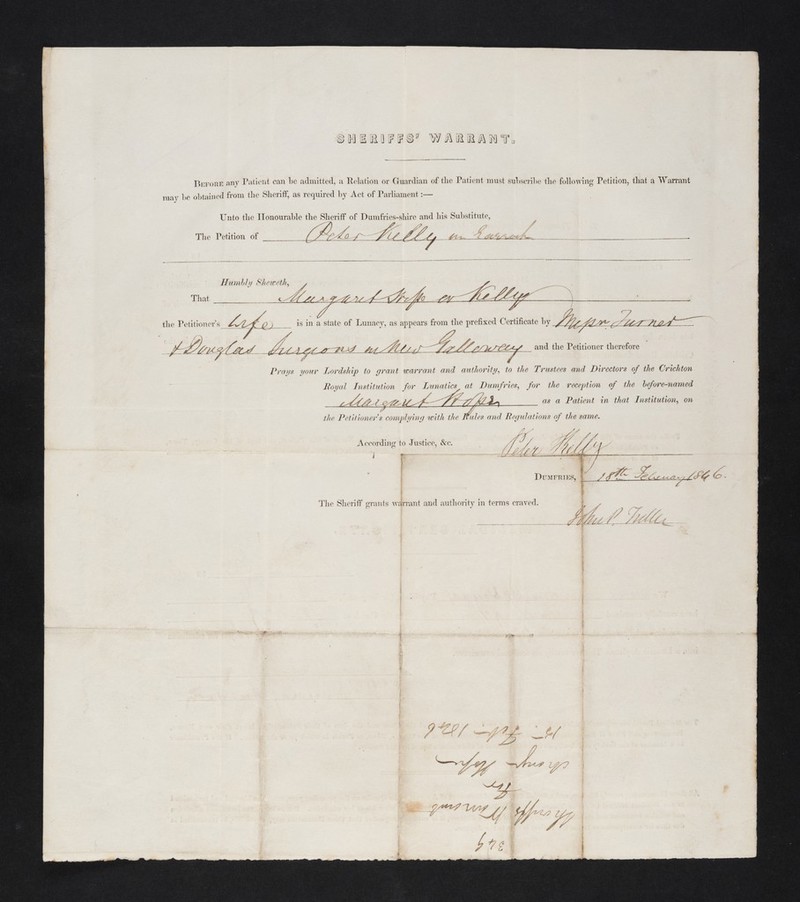 SHERIFFS' WARRANT.
BEFORE any Patient can be admitted, a Relation or Guardian of the Patient must subscribe the following Petition, that a Warrant
may be obtained from the Sheriff, as required by Act of Parliament :—
Unto the Honourable the Sheriff of Dumfries-shire and his Substitute,
The Petition of Peter Kelly in
Humbly Sheweth,
That Margaret Hope or Kelly
the Petitioner's Wife is in a state of Lunacy, as appears from the prefixed Certificate by Messrs. Turner
& Douglas Surgeons in New Galloway and the Petitioner therefore
Prays your Lordship to grant warrant and authority, to the Trustees and Directors of the Crichton
Royal Institution for Lunatics, at Dumfries, for the reception of the before-named
Margaret Hope as a Patient in that Institution, on
the Petitioner's complying with the Rules and Regulations of the same.
According to Justice, &c. Peter Kelly
DUMFRIES, 18th February 1846.
The Sheriff grants warrant and authority in terms craved.
John P.
349
Sheriffs Warrant
For
Hope
Feb. 1846